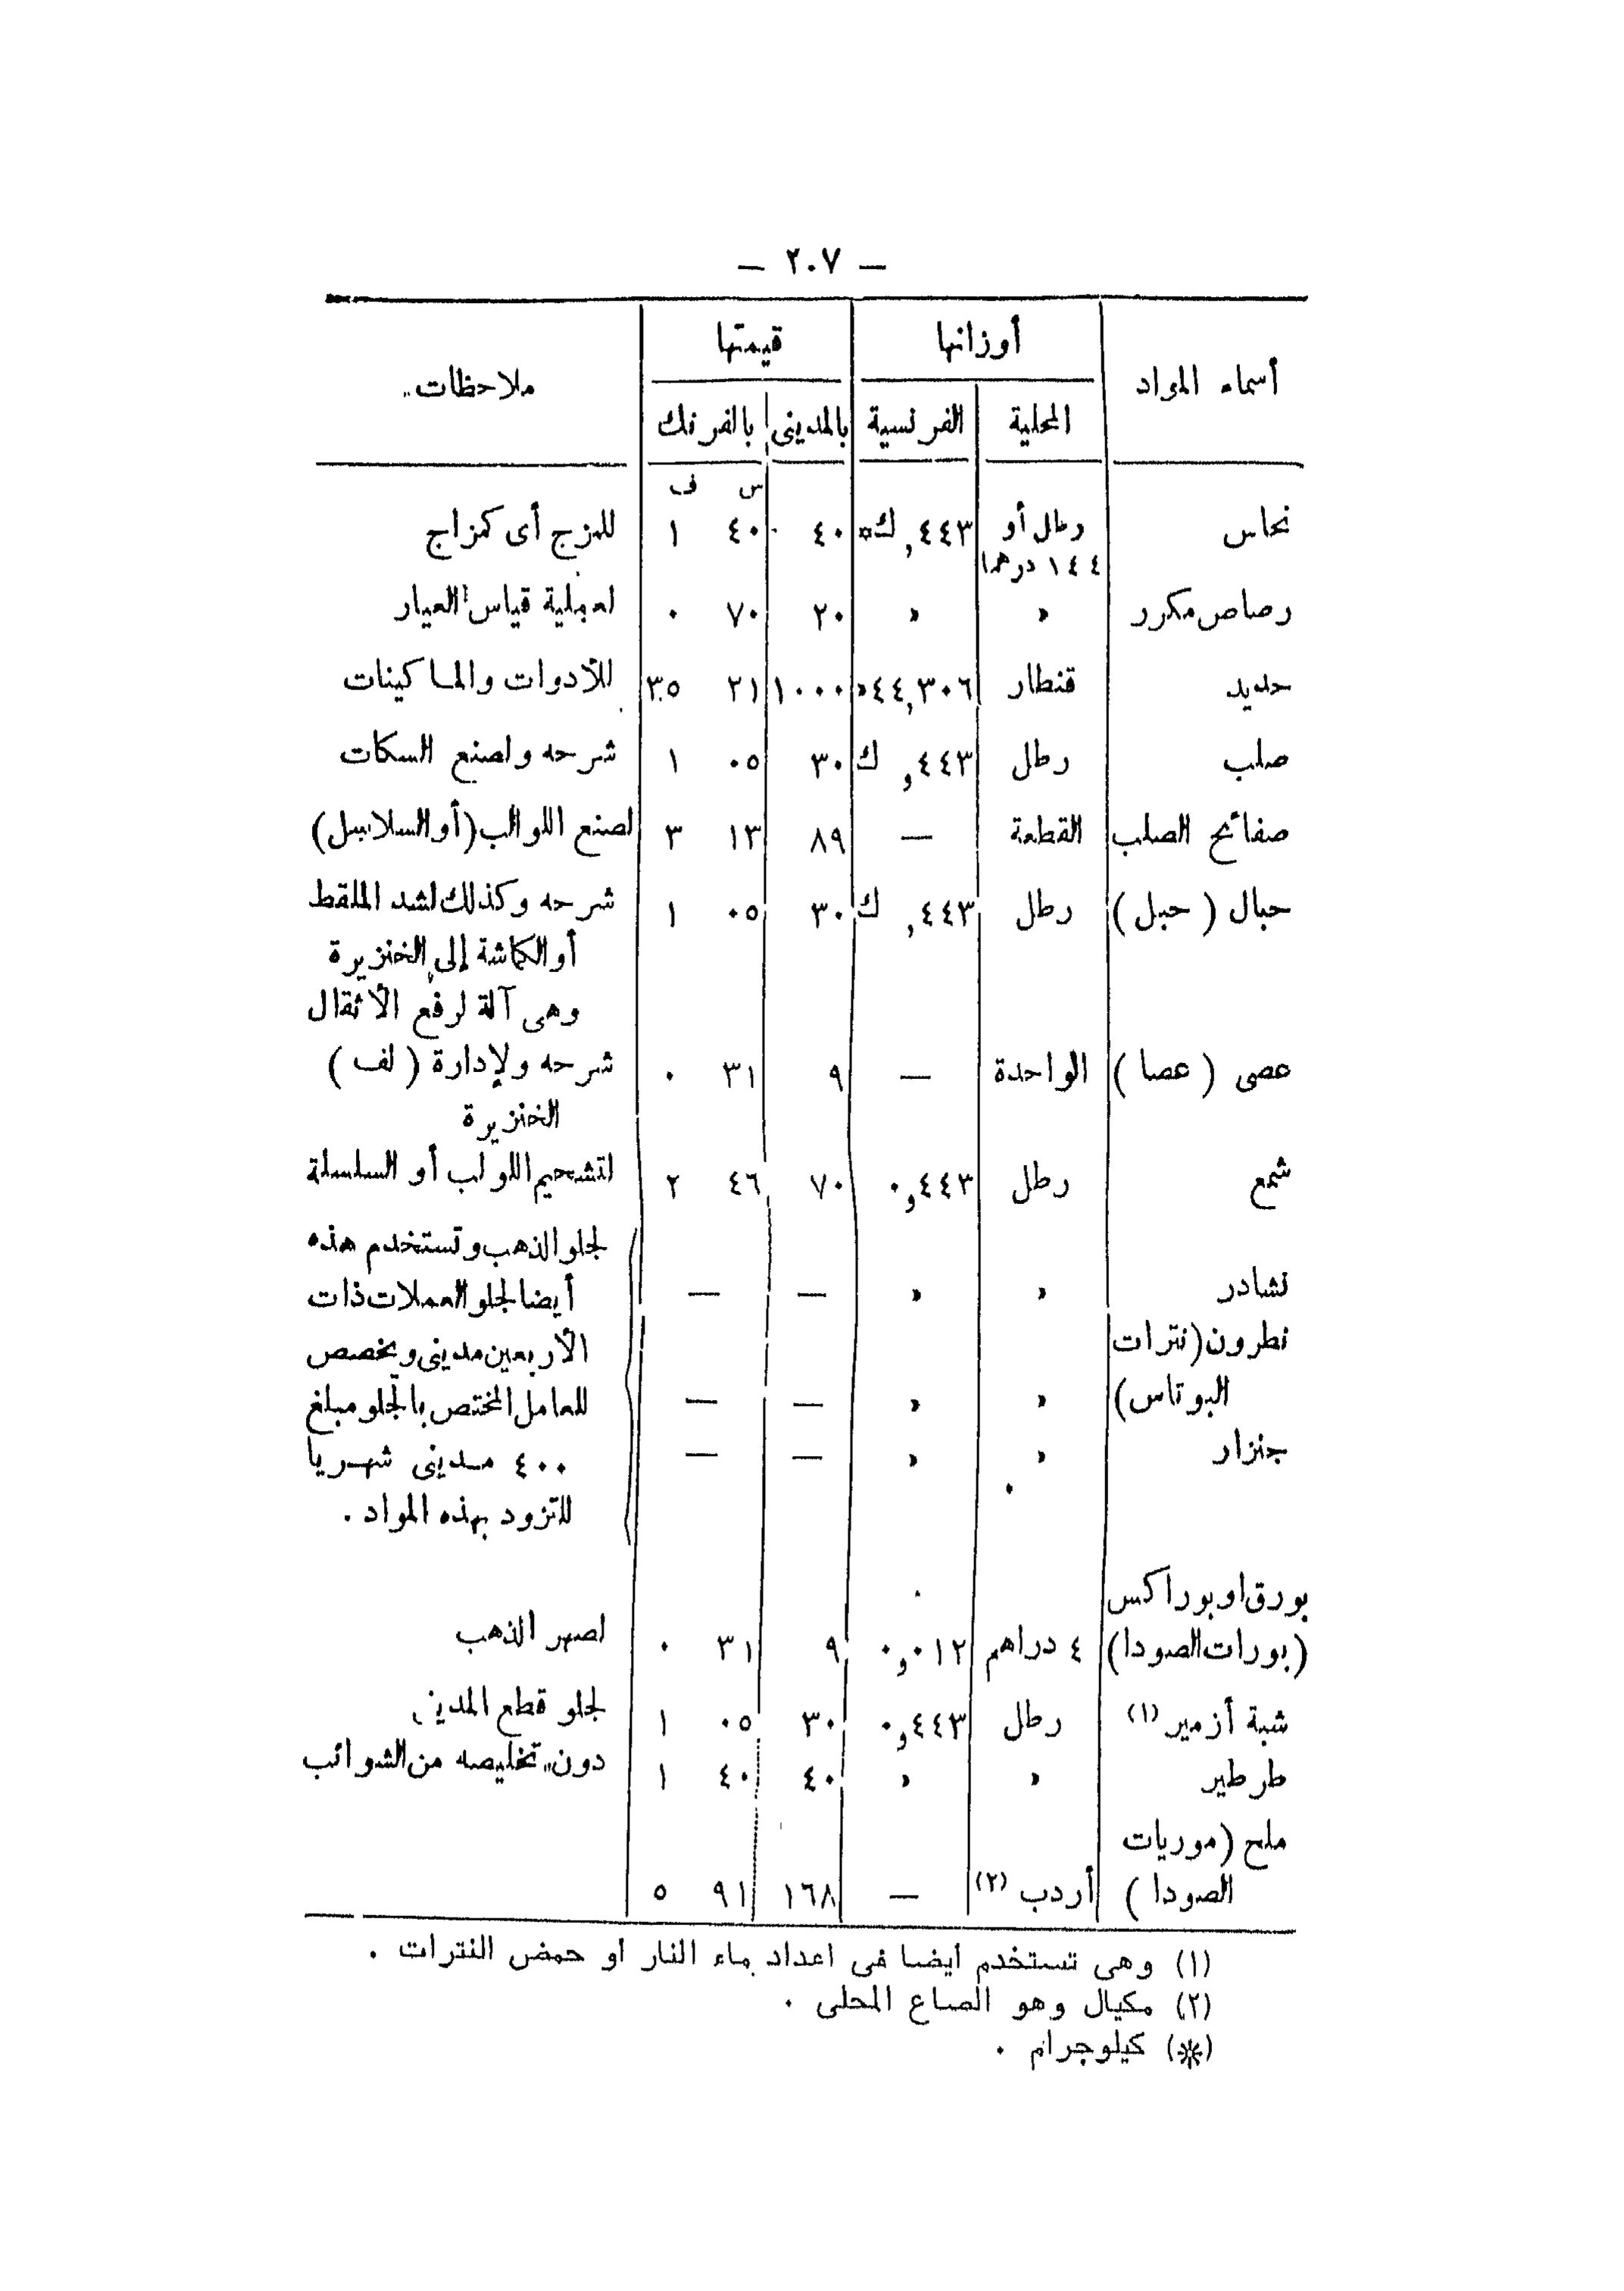 — ٢٠٧ —
أسماء المواد أوزانها قيمتها ملاحظات
المحلية الفرنسية بالمدينى بالفرنك
س ف
نحاس رطل أو ٤٤٣, ك* ٤٠ ٤٠ ١ للمزج أى كمزاج
١٤٤ درهما
رصاص مكرر » » ٢٠ ٧٠ ٠ لعملية قياس العيار
حديد قنطار ٤٤,٣٠٦» ١٠٠٠ ٢١ ٣٥ للأدوات والماكينات
صلب رطل ٤٤٣, ك ٣٠ ٠٥ ١ شرحه ولصنع السكات
صفائح الصلب القطعة — ٨٩ ١٣ ٣ لصنع اللوالب (أو السلاسل)
حبال ( حبل ) رطل ٤٤٣, ك ٣٠ ٠٥ ١ شرحه وكذلك لشد الملقط
أو الكماشة إلى الخنزيرة
وهى آلة لرفع الأثقال
عصى ( عصا ) الواحدة — ٩ ٣١ ٠ شرحه ولإدارة ( لف )
الخنزيرة
شمع رطل ٠,٤٤٣ ٧٠ ٤٦ ٢ لتشحيم اللولب أو السلسلة
لجلو الذهب وتستخدم هذه
نشادر » » — — أيضا لجلو العملات ذات
نطرون (نترات الأربعين مدينى ويخصص
البوتاس) » » — — للعامل المختص بالجلو مبلغ
جنزار » » — — ٤٠٠ مدينى شهريا
للتزود بهذه المواد .
بورق او بوراكس
(بورات الصودا) ٤ دراهم ٠,٠١٢ ٩ ٣١ ٠ لصهر الذهب
شبة أزمير (١) رطل ٠,٤٤٣ ٣٠ ٠٥ ١ لجلو قطع المدينى
طرطير » » ٤٠ ٤٠ ١ دون تخليصه من الشوائب
ملح (موريات
الصودا ) أردب (٢) — ١٦٨ ٩١ ٥
(١) وهى تستخدم أيضا فى اعداد ماء النار او حمض النترات .
(٢) مكيال وهو الصاع المحلى .
(*) كيلوجرام .